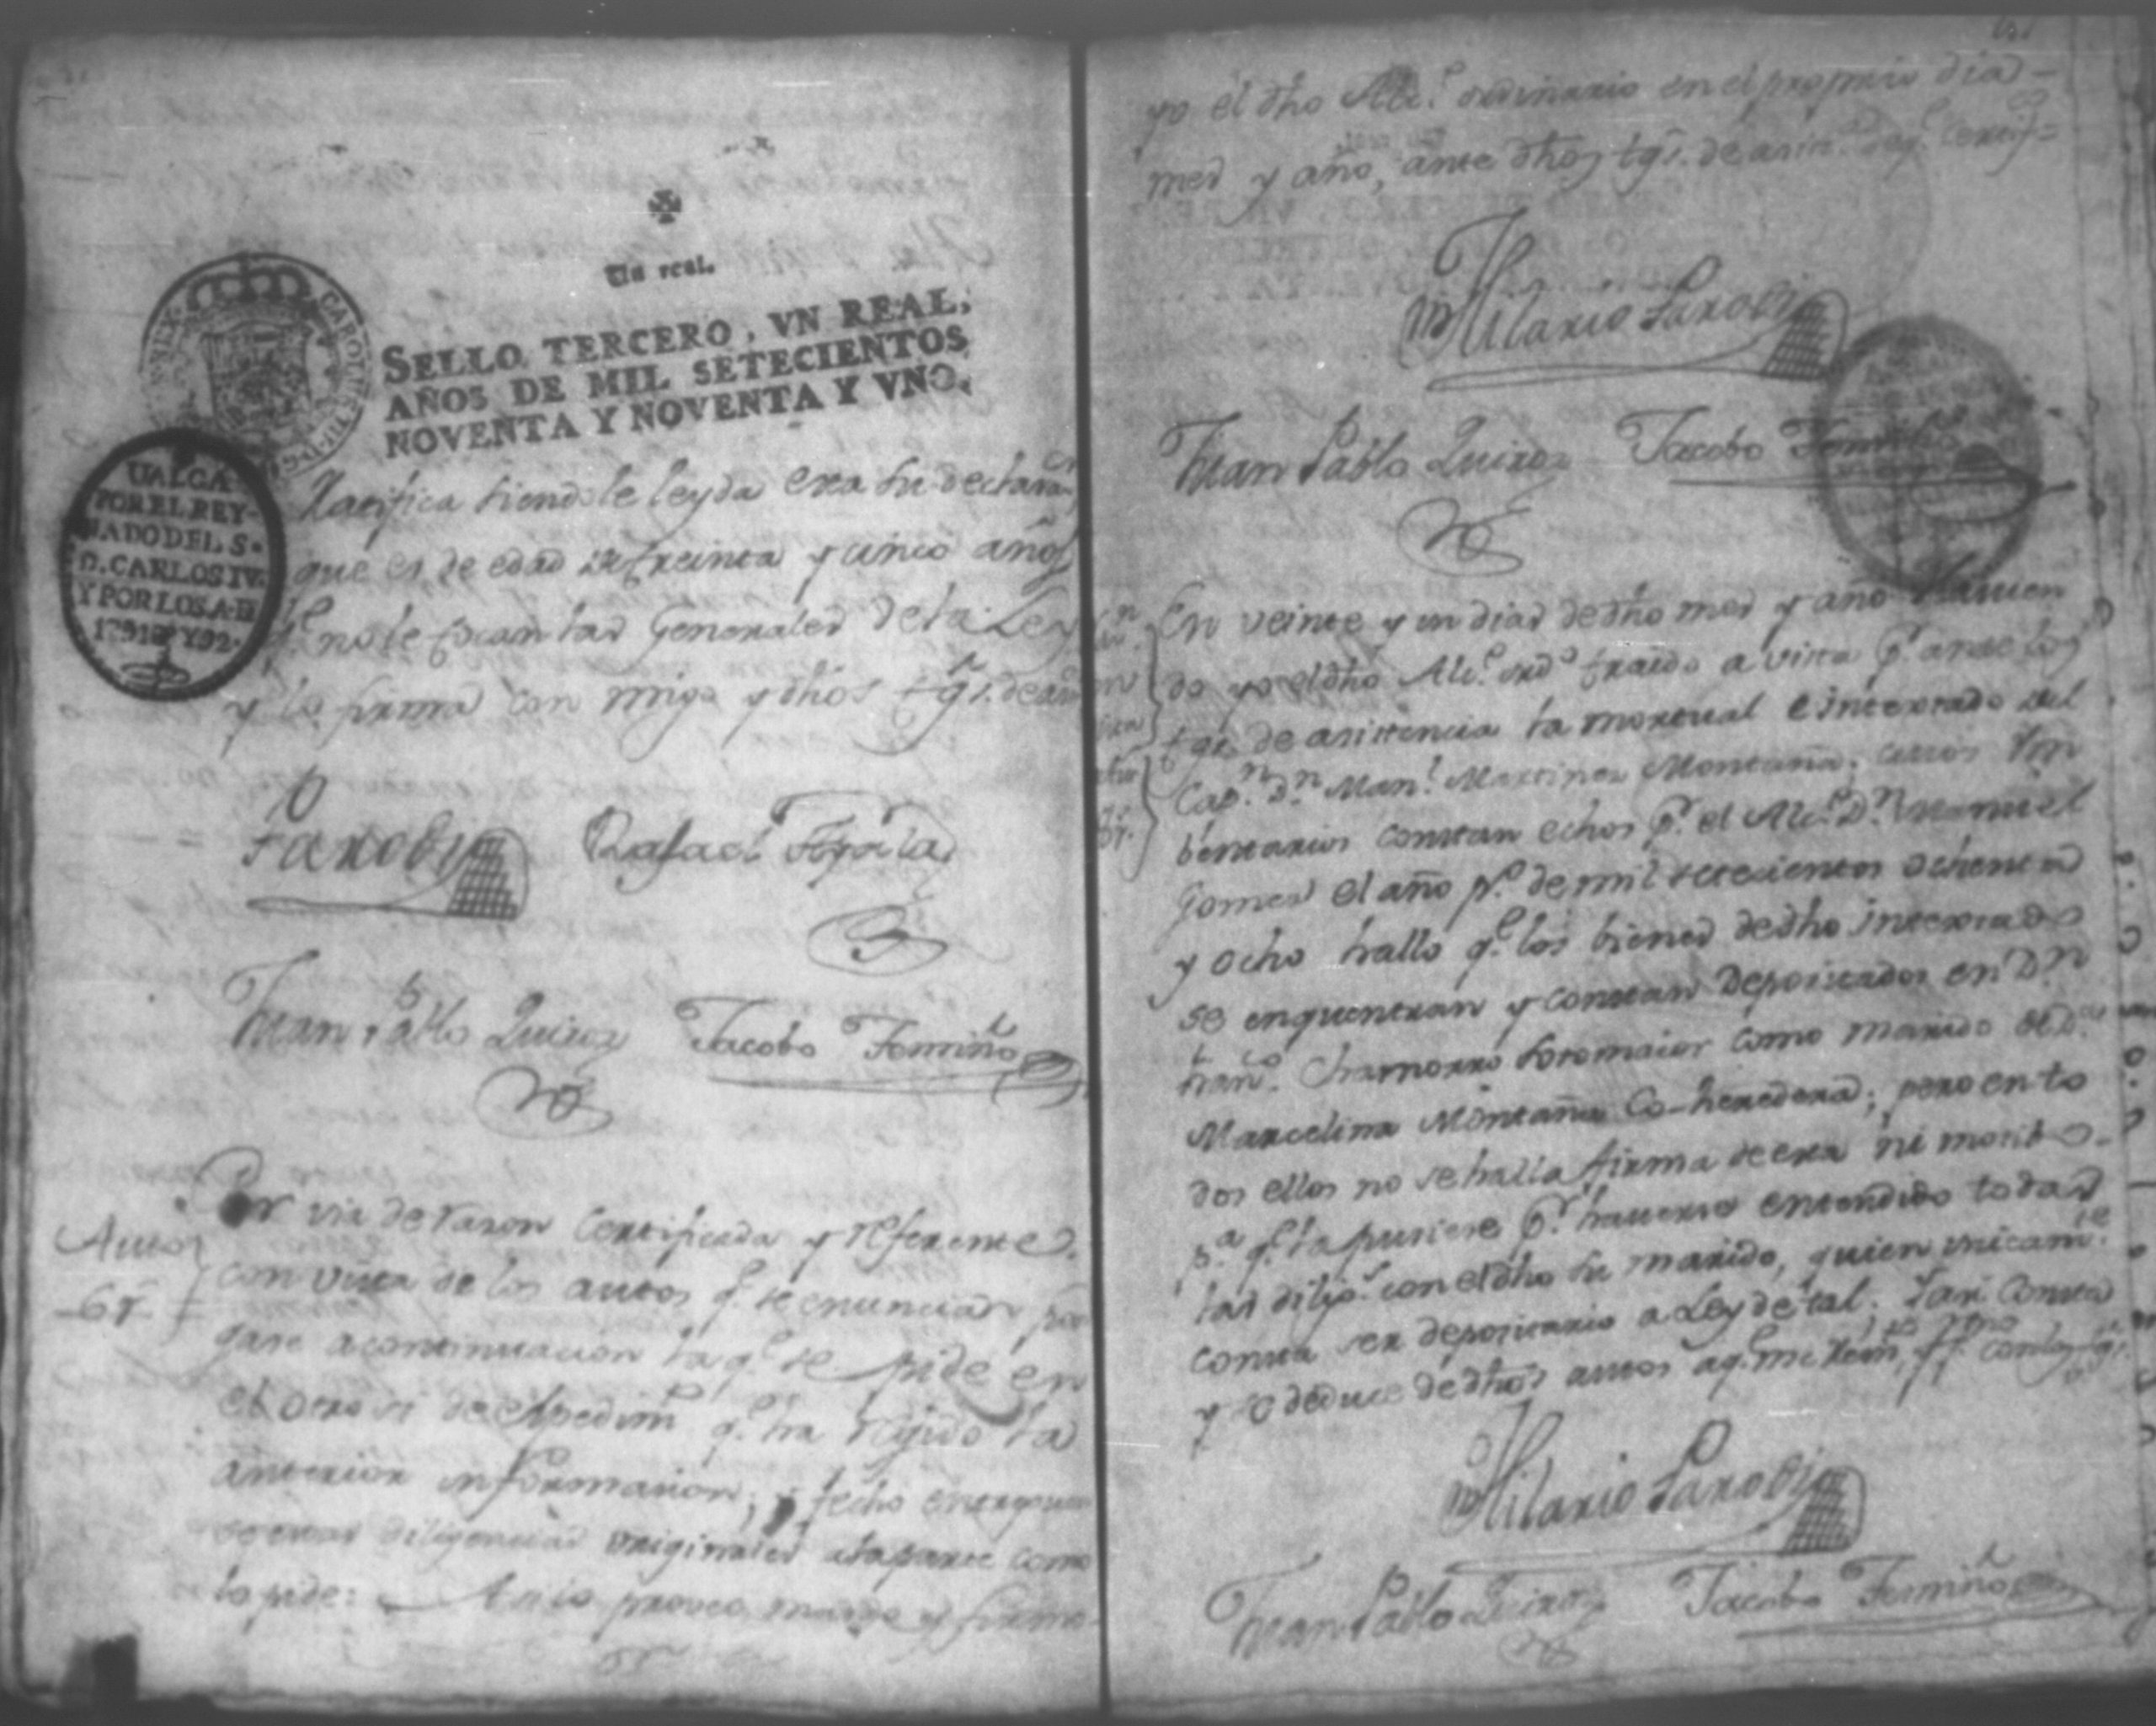 Un real.
SELLO TERCERO, VN REAL,
AÑOS DE MIL SETECIENTOS
NOVENTA Y NOVENTA Y VNO.
UALGA
POR EL REY-
NADO DEL S.
D. CARLOS IV.
Y POR LOS A. D
1791 Y 92.
Ratifica siendole leyda esta su declaraon
que es de edad de treinta y cinco años
qe. no le tocan las Generales de la Ley
y la firma con migo y dhos tgs. de
Sarobe
Rafael
Juan Pablo Quiroz Jacobo Fermiño
Autos
Por via de razon Certificada y referente
con vista de los autos qe. se enuncian
gase a continuacion la qe. se pide en
el otro si del pedimto qe. ha rejido la
anterior informacion; y fecho
diligencias originales a la parte como
lo pide: Asi lo proveo, mando y firmo
yo el dho Alce. ordinario en el propio dia
mes y año, ante dhos tgs. de asisa. de qe. Certifco=
Hilario Sarobe
Juan Pablo Quiroz Jacobo Fermiño
En veinte y un dias de dho mes y año Havien
do yo el dho Alce. ordo. traido a vista pr. ante los
tgs. de asistencia la mortual e intestado del
Capn. Dn. Manl. Martinez Montaña, cuios Ym
bentarios constan echos pr. el Alce. Dn. Manuel
Gomez el año po. de mil setecientos ochenta
y ocho hallo qe. los bienes de dho intestado
se enquentran y constan depositados en Dn.
franco. Chamorro Sotomaior como marido de Da.
Marcelina Montaña Co-heredera; pero en to
dos ellos no se halla firma de esta ni motibo
pa. qe. la pusiese pr. haverse entendido todas
las diligs. con el dho su marido, quien unicamte.
consta ser depositario a Ley de tal. Asi Consta
y se deduce de dhos autos a qe. me remito
Hilario Sarobe
Juan Pablo Quiroz Jacobo Fermiño